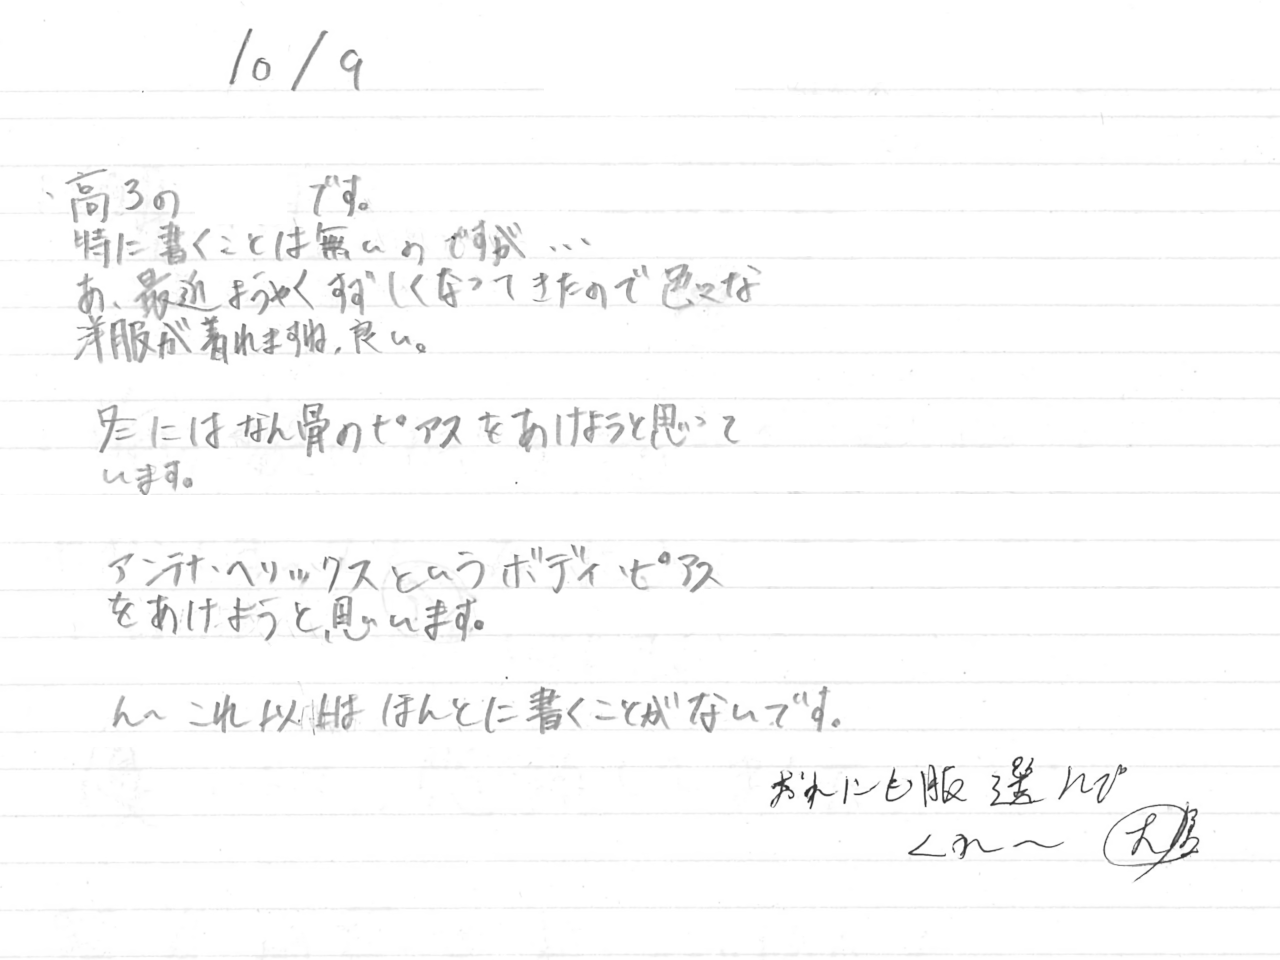 10/9
高3の です。
特に書くことは無いのですが…
あ、最近ようやくすずしくなってきたので色々な
洋服が着れますね、良い。
冬にはなん骨のピアスをあけようと思って
います。
アンテナ・ヘリックスというボディ・ピアス
をあけようと思います。
ん〜これ以上はほんとに書くことがないです。
おれにも服選んで
くれ〜